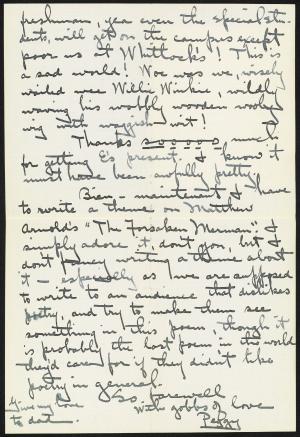 freshman, yea even the special stu-
dents, will get on the campus except
poor us at Whitlocks! This is
a sad world! Woe was we, wisely
wided wee Willie Winkie, wildly
waving his wobbly wooden wooley
wig with waggish wit!
Thanks so o o o o much
for getting E's present. I know it
must have been awfully pretty.
Bien, maintenant I have
to write a theme on Matthew
Arnold's "The Forsaken Merman". I
simply adore it, don't you, but I
don't fancy writing a theme about
it - especially as we are supposed
to write to an audience that dislikes
poetry, and try to make them see
something in this poem, though it
is probably the last poem in the world
they'd care for if they didn't like
poetry in general.
So farewell
With gobbs of love
Peggy
Give my love
to dad.